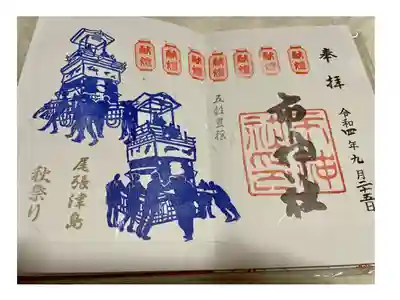 献燈
献燈
献燈
献燈
献燈
献燈
献燈
奉拝
市神社
令和四年九月二十五日
五穀豊穣
尾張津島
秋祭り